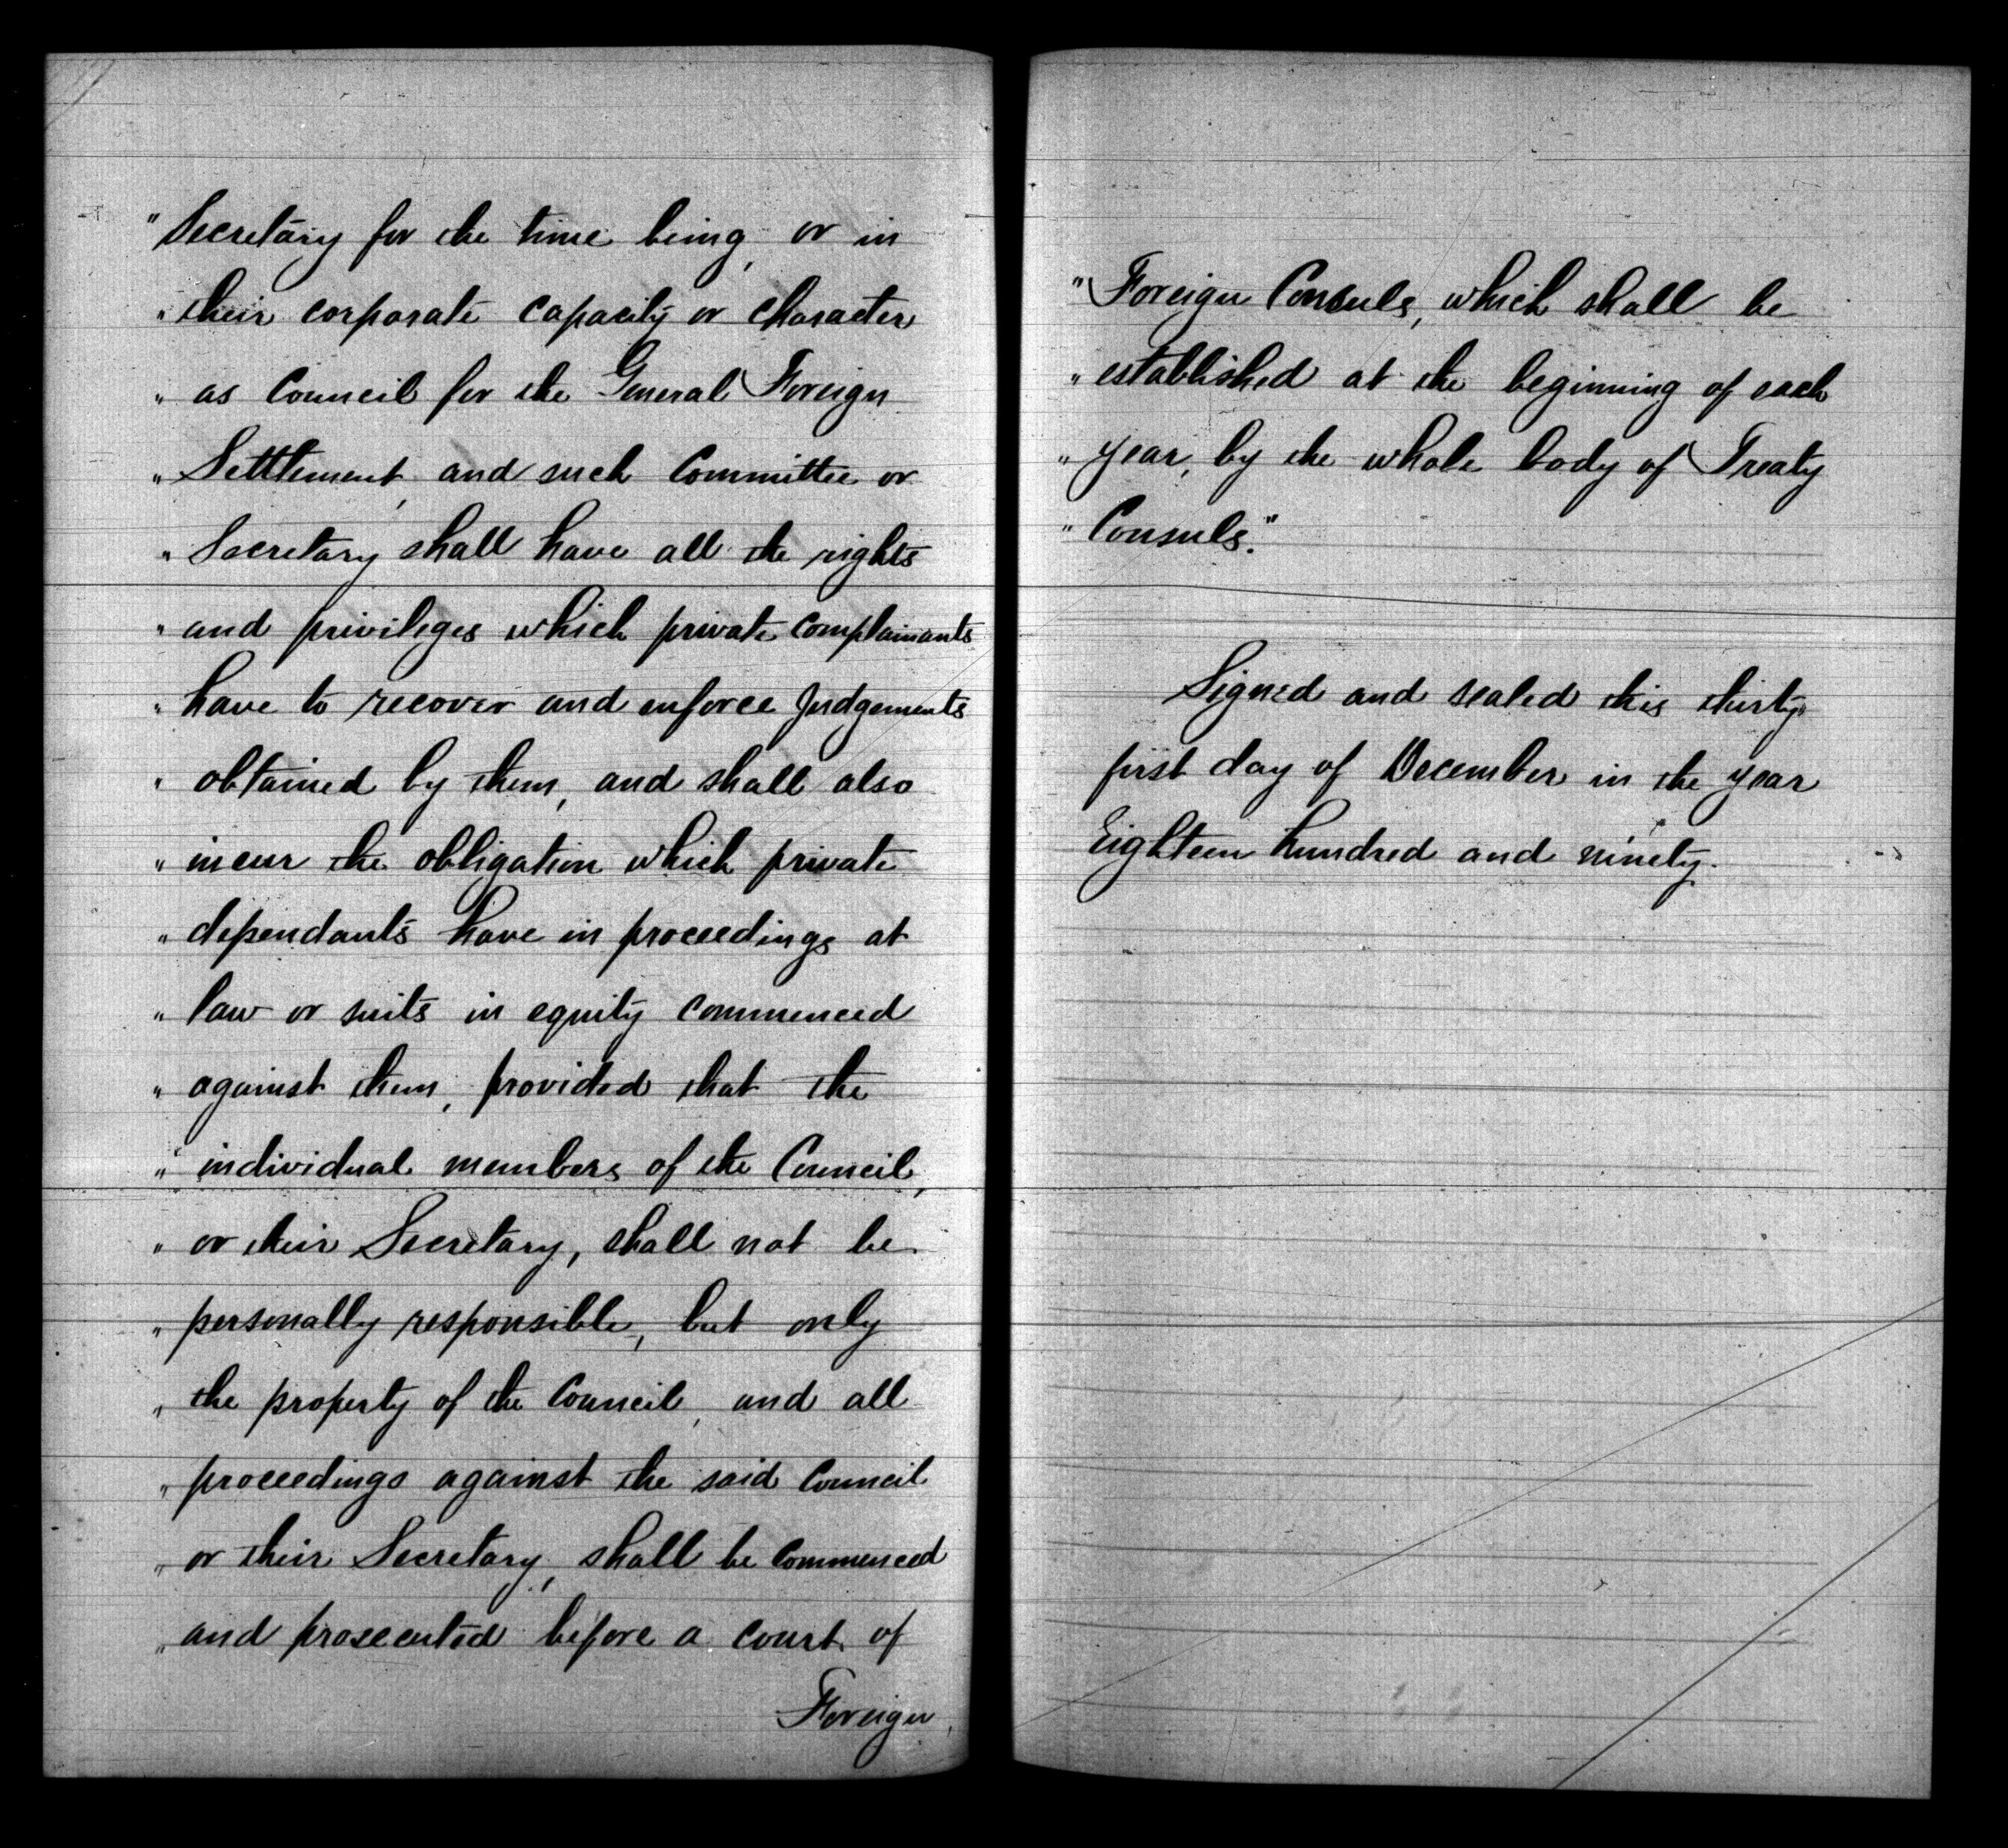 "Secretary for the time being, or in
" their corporate capacity or character
" as Council for the General Foreign
" Settlement, and such Committee or
" Secretary shall have all the rights
" and privileges which private complainants
" have to recover and enforce judgements
" obtained by them, and shall also
" incur the obligation which private
" dependants have in proceedings at
" law or suits in equity commenced
" against them, provided that the
" individual members of the Council,
" or their Secretary, shall not be
" personally responsible, but only
" the property of the Council, and all
" proceedings against the said Council
" or their Secretary, shall be commenced
" and prosecuted before a court of
Foreign
" Foreign Consuls, which shall be
" established at the beginning of each
" year, by the whole body of Treaty
" Consuls."
Signed and sealed this thirty
first day of December in the year
Eighteen hundred and ninety.